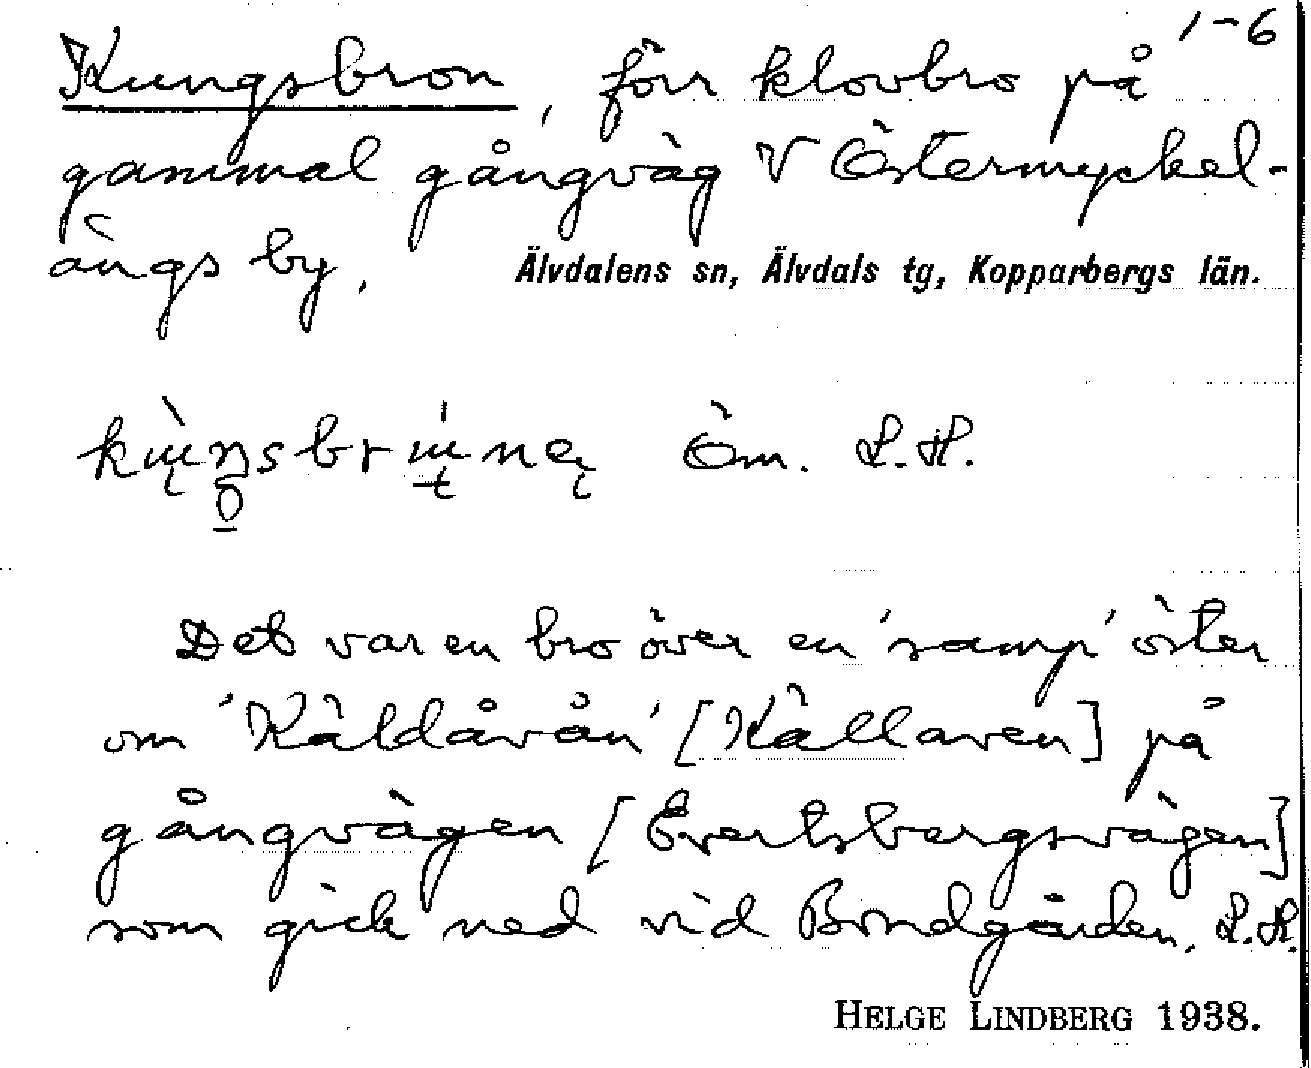 1-6
Kungsbron, förr klovbro på
gammal gångväg V Östermyckel-
ängs by. Älvdalens sn, Älvdals tg, Kopparbergs län.
Öm. L.H.
Det var en bro över en 'samp' öster
om 'Käldåvån' [Källaven] på
gångvägen [Evertsbergsvägen]
som gick ned vid Bondgården. L.H.
HELGE LINDBERG 1938.